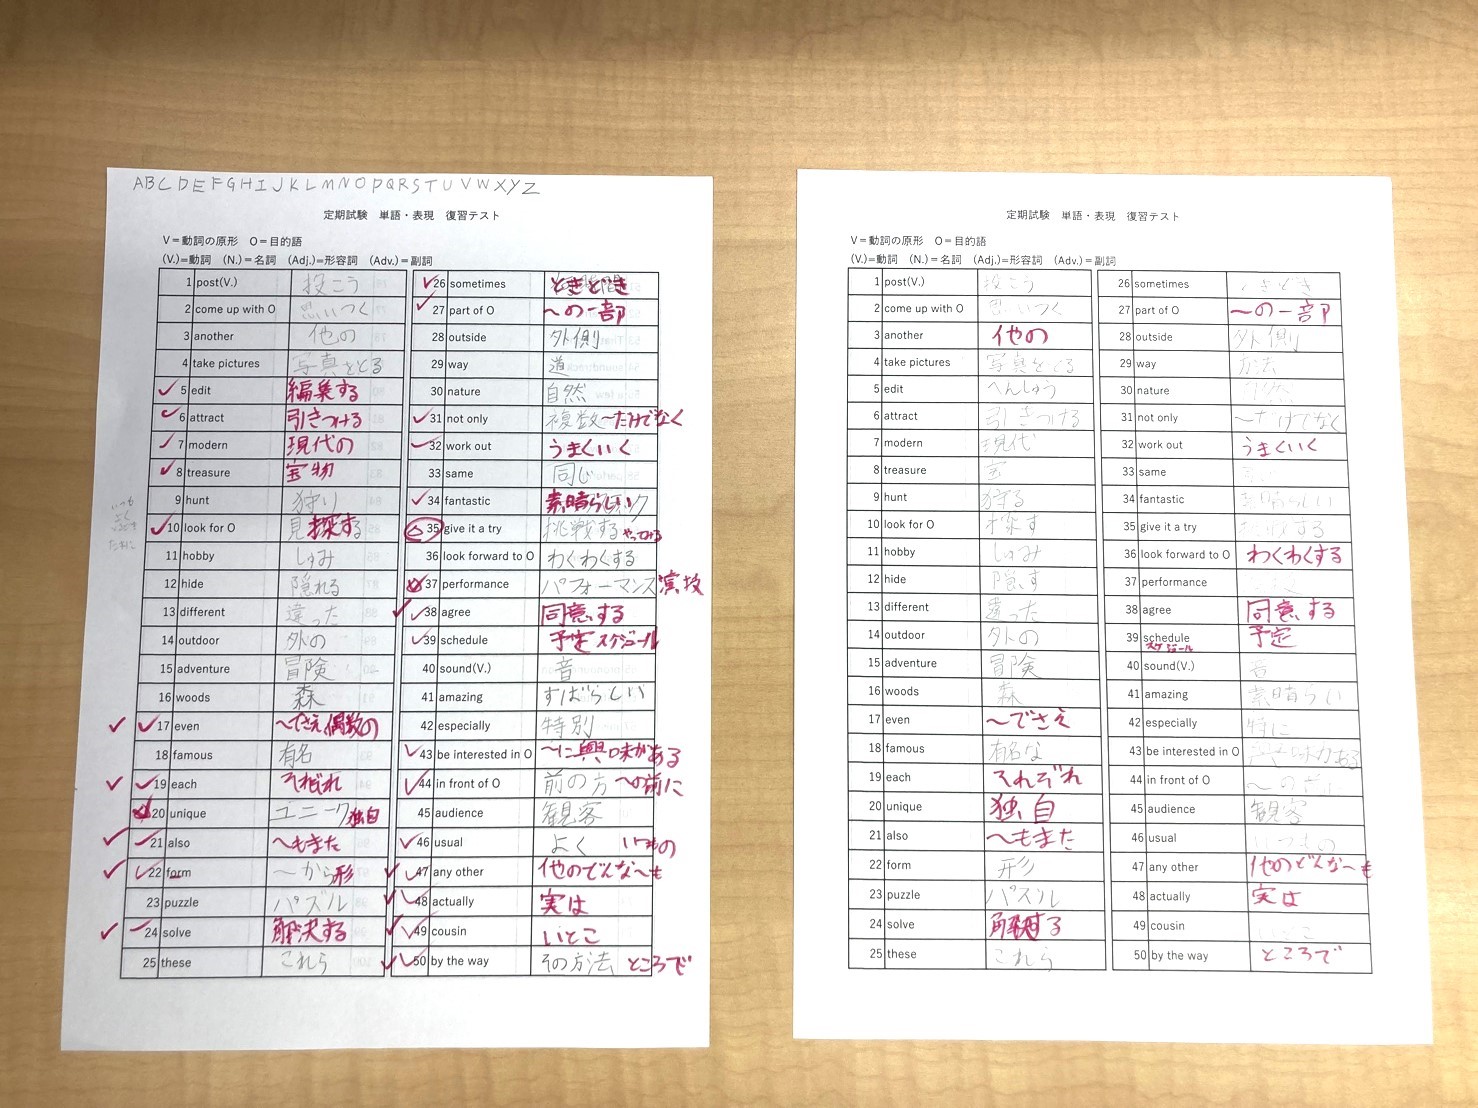 ABCDEFGHIJKLMNOPQRSTUVWXYZ
定期試験　単語・表現　復習テスト
V＝動詞の原形　O＝目的語
(V.)＝動詞　(N.)＝名詞　(Adj.)＝形容詞　(Adv.)＝副詞
1 post(V.) 投こう
2 come up with O 思いつく
3 another 他の
4 take pictures 写真をとる
5 edit 編集する
6 attract 引きつける
7 modern 現代の
8 treasure 宝物
9 hunt 狩り
10 look for O 見 探する
11 hobby しゅみ
12 hide 隠れる
13 different 違った
14 outdoor 外の
15 adventure 冒険
16 woods 森
17 even 〜でさえ 偶数の
18 famous 有名
19 each それぞれ
20 unique ユニーク 独自
21 also 〜もまた
22 form 〜から 形
23 puzzle パズル
24 solve 解決する
25 these これら
26 sometimes ときどき
27 part of O 〜の一部
28 outside 外側
29 way 道
30 nature 自然
31 not only 複数 〜だけでなく
32 work out うまくいく
33 same 同じ
34 fantastic 素晴らしい
35 give it a try 挑戦する やってみる
36 look forward to O わくわくする
37 performance パフォーマンス 演技
38 agree 同意する
39 schedule 予定 スケジュール
40 sound(V.) 音
41 amazing すばらしい
42 especially 特別
43 be interested in O 〜に興味がある
44 in front of O 前の方 〜の前に
45 audience 観客
46 usual よく いつもの
47 any other 他のどんな〜も
48 actually 実は
49 cousin いとこ
50 by the way その方法 ところで
定期試験　単語・表現　復習テスト
V＝動詞の原形　O＝目的語
(V.)＝動詞　(N.)＝名詞　(Adj.)＝形容詞　(Adv.)＝副詞
1 post(V.) 投こう
2 come up with O 思いつく
3 another 他の
4 take pictures 写真をとる
5 edit へんしゅう
6 attract 引きつける
7 modern 現代
8 treasure 宝
9 hunt 狩る
10 look for O 探す
11 hobby しゅみ
12 hide 隠す
13 different 違った
14 outdoor 外の
15 adventure 冒険
16 woods 森
17 even 〜でさえ
18 famous 有名な
19 each それぞれ
20 unique 独自
21 also 〜もまた
22 form 形
23 puzzle パズル
24 solve 解決する
25 these これら
26 sometimes ときどき
27 part of O 〜の一部
28 outside 外側
29 way 方法
30 nature
31 not only 〜だけでなく
32 work out うまくいく
33 same
34 fantastic 素晴らしい
35 give it a try
36 look forward to O わくわくする
37 performance
38 agree 同意する
39 schedule 予定
スケジュール
40 sound(V.) 音
41 amazing 素晴らしい
42 especially 特に
43 be interested in O 興味がある
44 in front of O
45 audience 観客
46 usual いつもの
47 any other 他のどんな〜も
48 actually 実は
49 cousin いとこ
50 by the way ところで